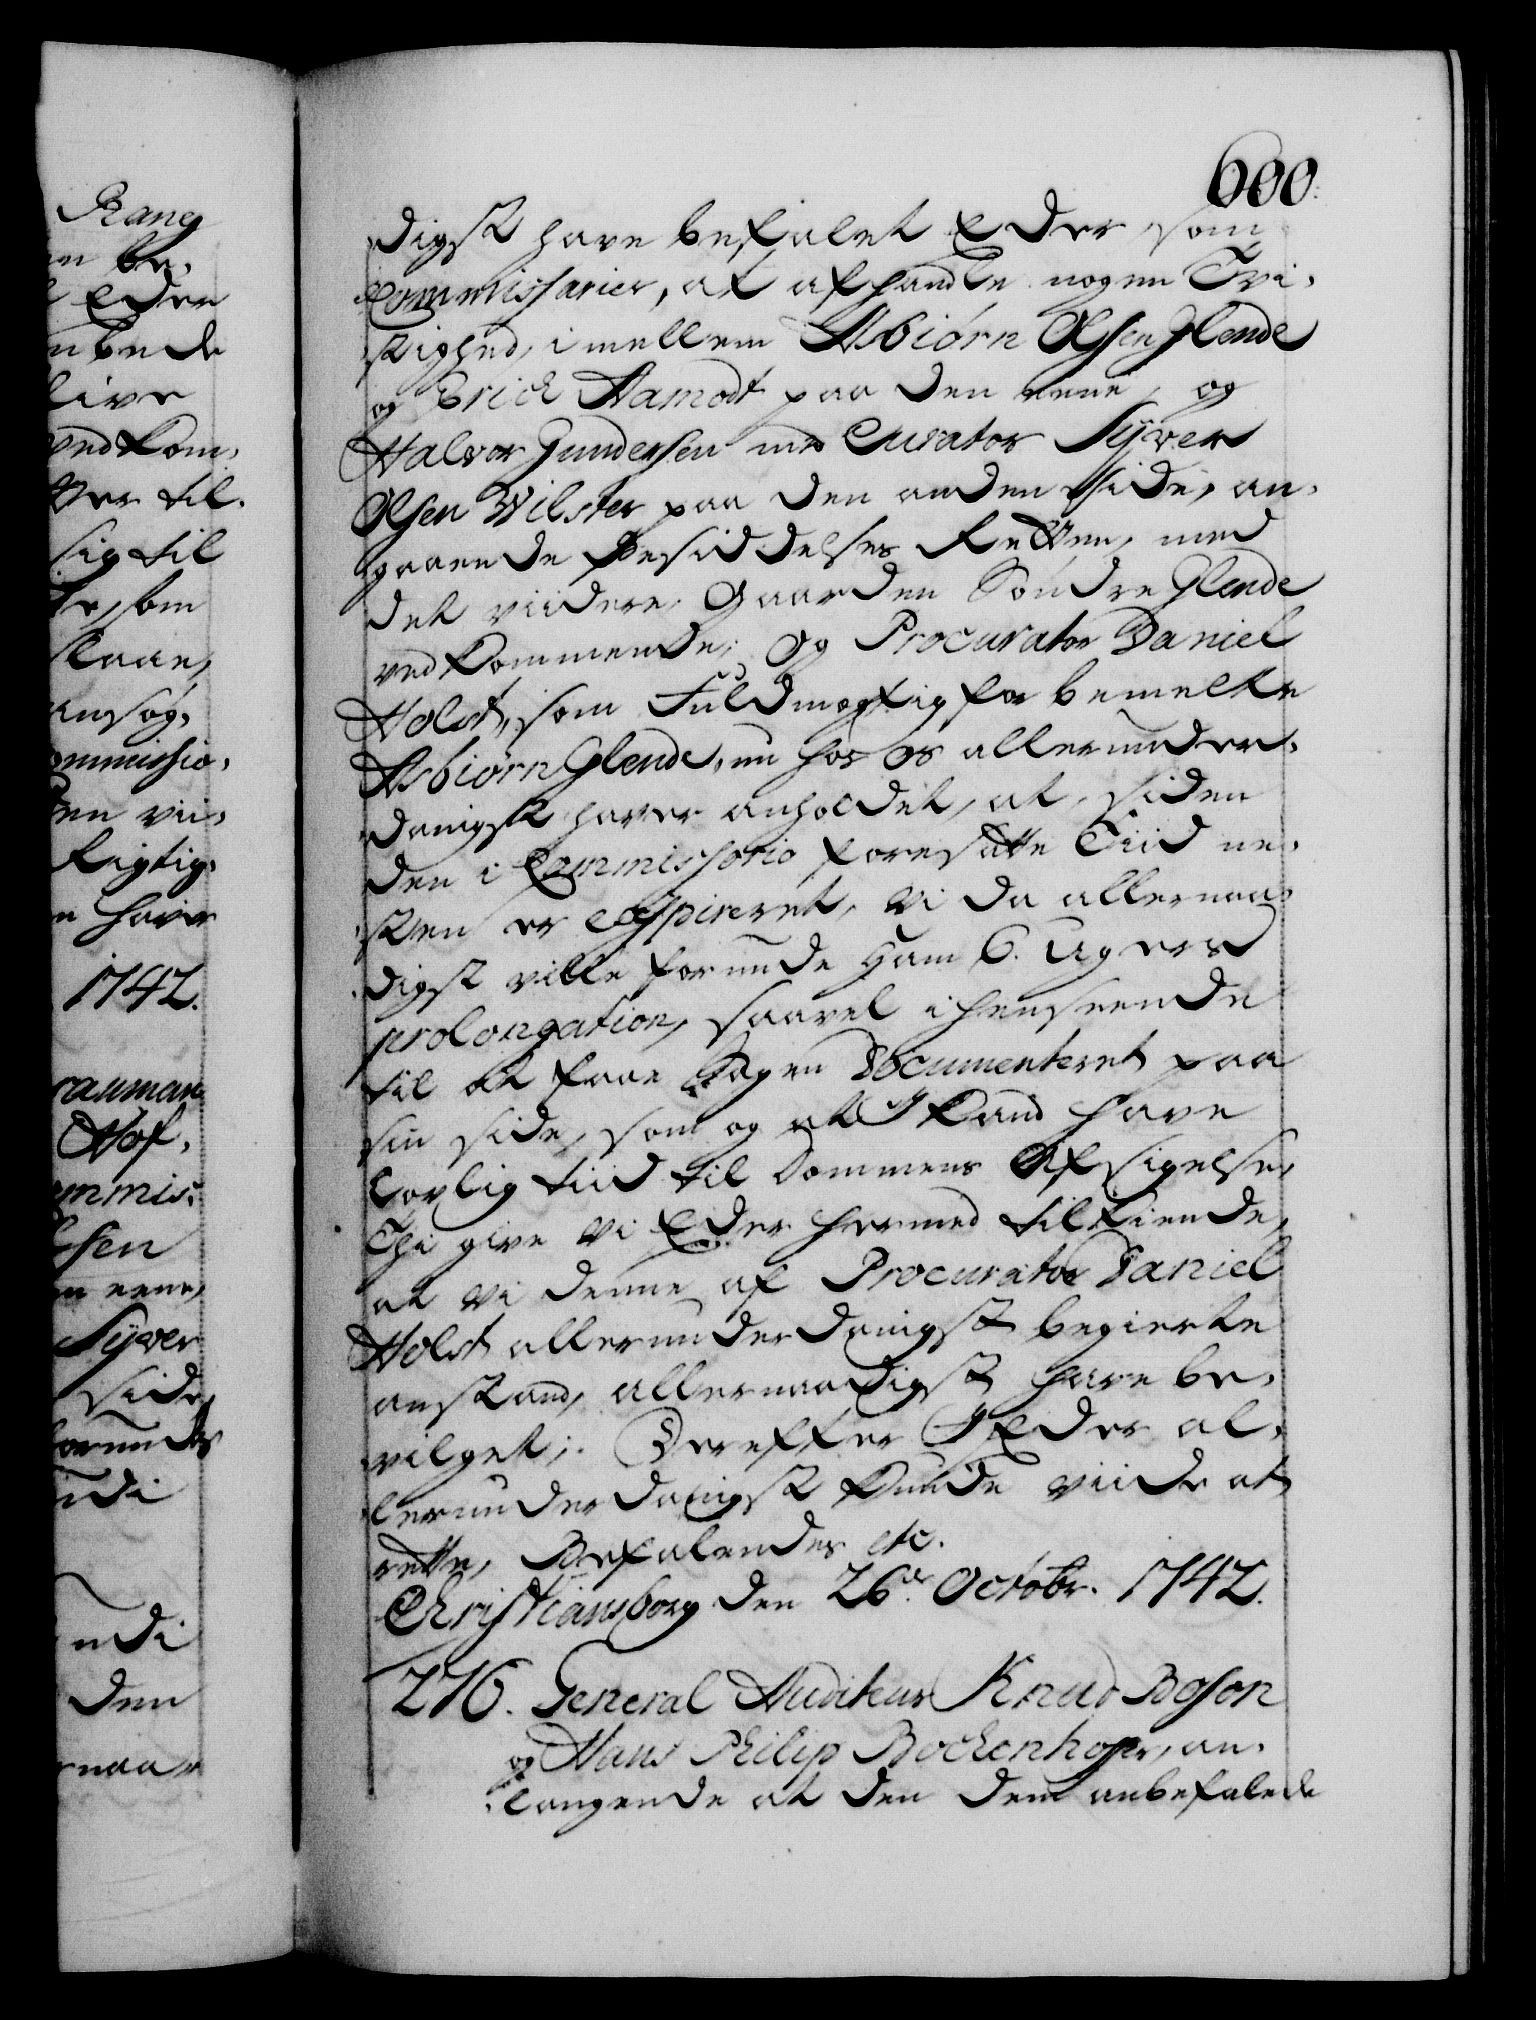 600.
digst have befalet Eder, som
Commissarier, at afhandle nogen Tvi-
stighed, imellem Asbiørn Olsen Glende
og Erich Aamodt paa den eene, og
Halvor Gundersen med Curator Syver
Olsen Wilster paa den anden Side, an-
gaaende Besiddelses Retten, med
det viidere, Gaarden Søndre Glende
vedkommende; Og Procurator Daniel
Holst, som Fuldmægtig for bemelte
Asbiørn Glende, nu hos os allerunder-
danigst haver anholdet, at, siden
den i Commissorio foresatte Tiid ne-
sten er exspireret, Vi da allernaa-
digst ville forunde ham 6. Ugers
prolongation, saavel i henseende
til at faae Sagen Documenteret paa
sin side, som og at I kand have
lovlig tiid til Dommens Afsigelse,
Thi give Vi Eder hermed tilkiende,
at Vi denne af Procurator Daniel
Holst allerunderdanigst begierte
anstand, allernaadigst have be-
vilget; Derefter I Eder al-
lerunderdanigst kunde viide at
rette, Befalendes etc.
Christiansborg den 26de Octobr. 1742.
276. General Auditeur Knud Boson
og Hans Philip Bockenhoffer, an-
langende at den dem anbefalede
Rang
be-
Eder
vedkom-
til-
sig til
som
ansøg-
ommissio-
Rigtig-
haver
1742.
Hof-
ommis-
eene,
Syver
side
den